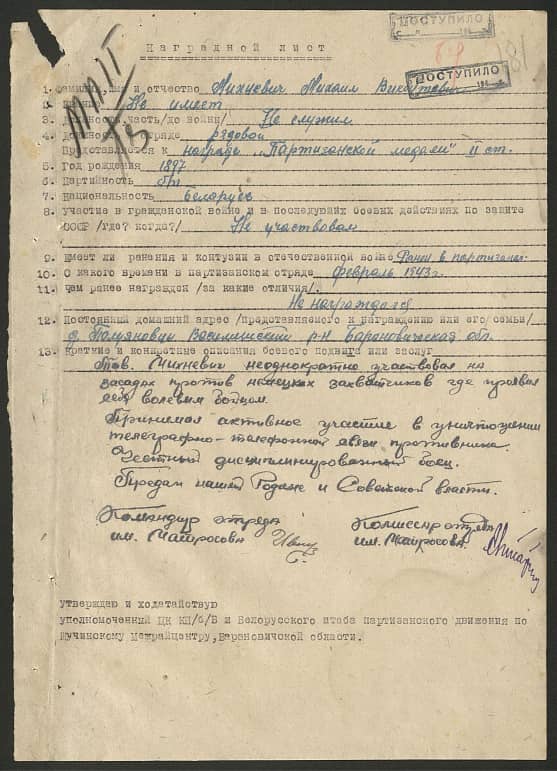 ПОСТУПИЛО
Наградной лист
ПОСТУПИЛО
1. Фамилия, имя и отчество Михневич Михаил
2. Звание Не имеет
3. часть/до войны/ Не служил
4. Должность отряде рядовой
Представляется к награде „Партизанской медали" II ст.
5. Год рождения 1897
6. Партийность б/п
7. Национальность Беларусь
8. Участие в гражданской войне и в последующих боевых действиях по защите
СССР /где? когда?/ Не участвовал
9. Имеет ли ранения и контузии в отечественной войне Ранен в
10. С какого времени в партизанском отряде февраль 1943 г.
11. Чем ранее награжден /за какие отличия/
Не награждался
12. Постоянный домашний адрес /представляемого к награждению или его семьи/
д. Василишский р-н Барановическая обл.
13. Краткие и конкретные описания боевого подвига или заслуг
Тов. Михневич неоднократно участвовал на
засадах против немецких захватчиков где проявил
себя волевым бойцом.
Принимал активное участие в уничтожении
телеграфно-телефонной связи противника.
Честный дисциплинированный боец.
Предан нашей Родине и Советской власти.
Командир отряда Комиссар отряда
им. Матросова им. Матросова
утверждаю и ходатайствую
уполномоченный ЦК КП/б/Б и Белорусского штаба партизанского движения по
Щучинскому межрайцентру, Барановичской области.